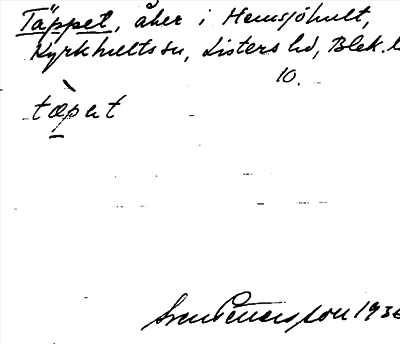 Täppet, åker i Hemsjöhult,
Kyrkhults sn, Listers hd, Blek. l
10.
tæ̀pet
Sven Petersson 193